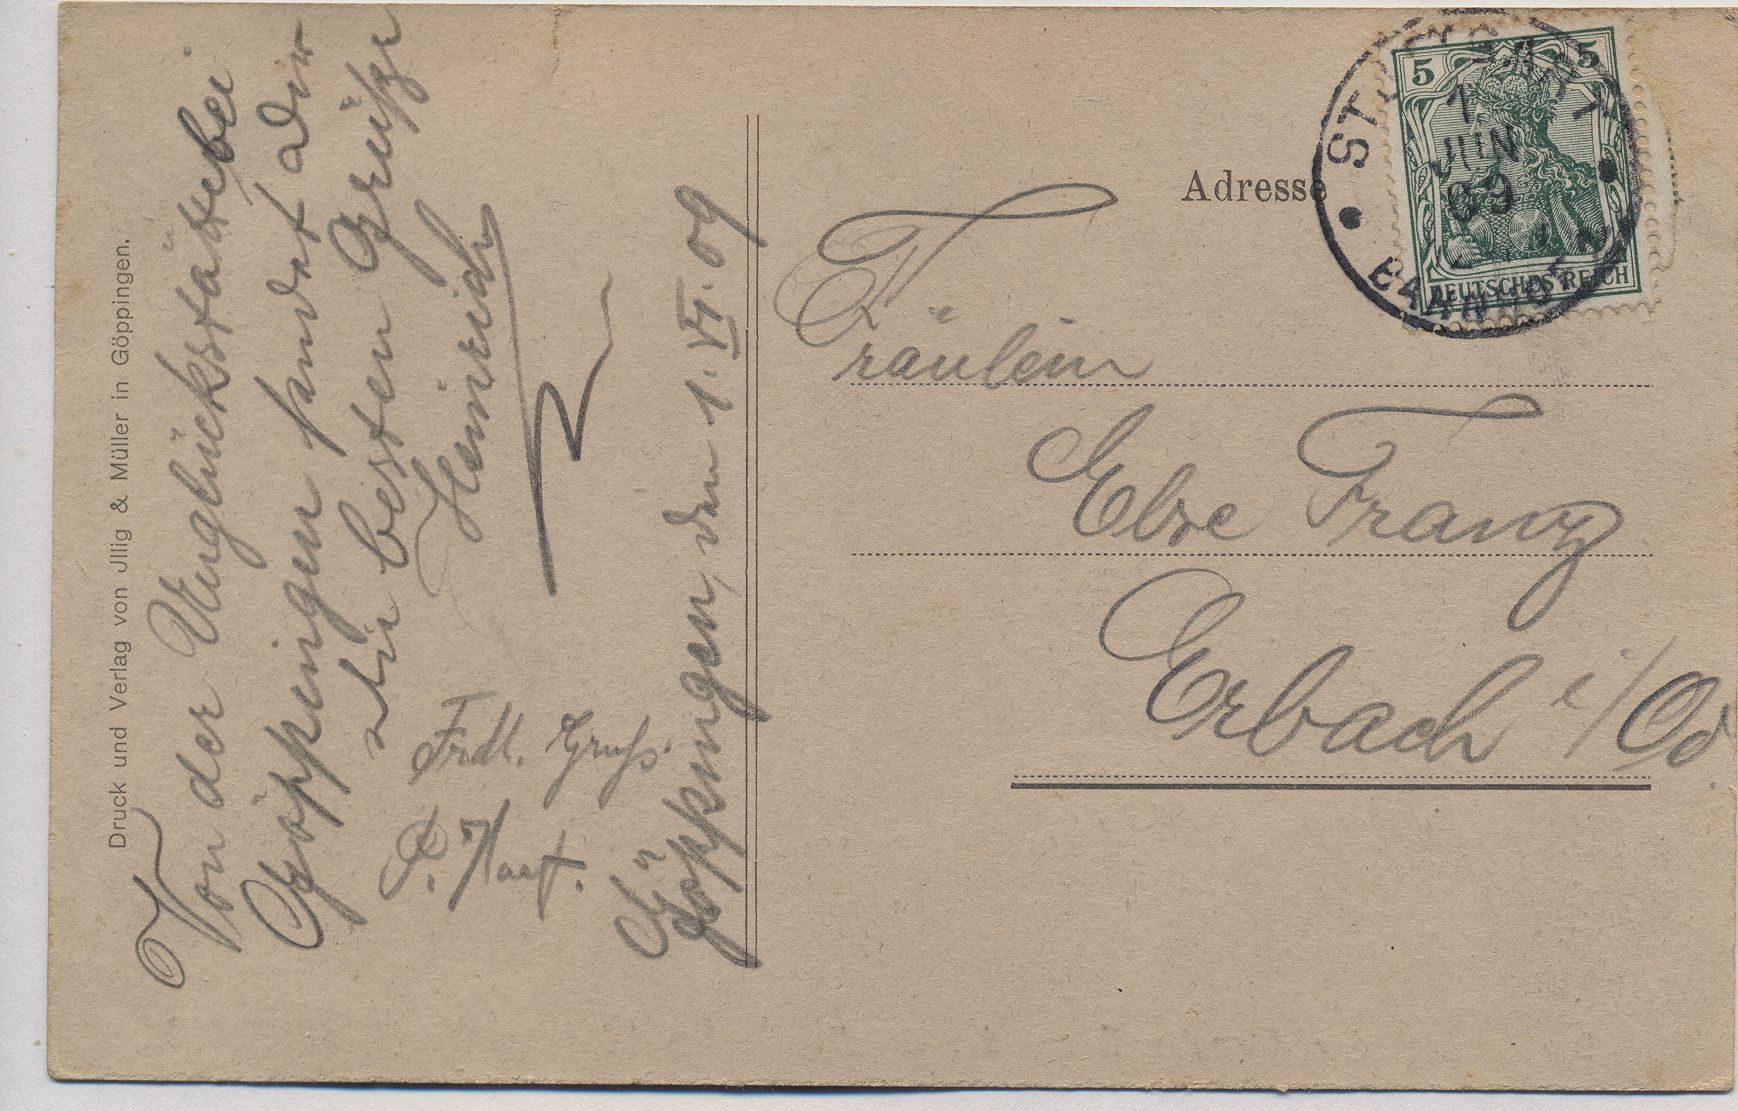 Druck und Verlag von Jllig & Müller in Göppingen.
Von der Unglücksstätte bei
Göppingen sendet dir
die besten Grüße
Heinrich
Frdl. Gruß
P.
Göppingen, den 1. VI. 09
Adresse
STUTTGART
1
JUN
09
BAHNHOF
5 5
DEUTSCHES REICH
Fräulein
Else Franz
Erbach i/Od.